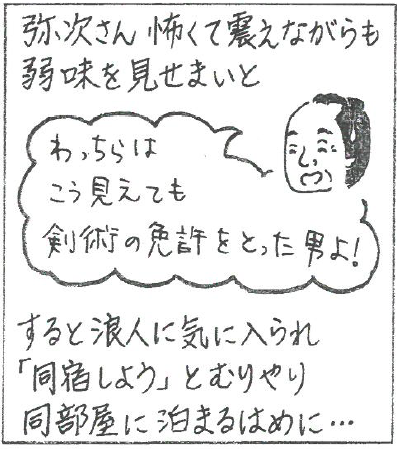 弥次さん 怖くて震えながらも
弱味を見せまいと
わっちらは
こう見えても
剣術の免許をとった男よ!
すると浪人に気に入られ
「同宿しよう」とむりやり
同部屋に泊まるはめに…